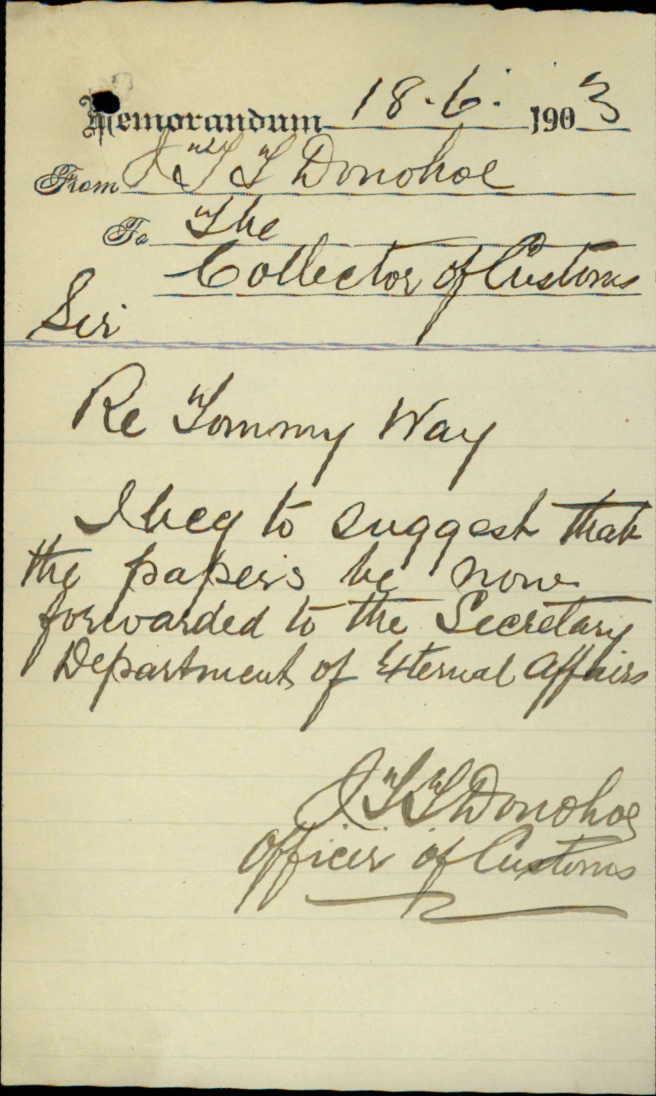 Memorandum 18.6. 1903
From J T T Donohoe
To The
Collector of Customs
Sir
Re Tommy Way
I beg to suggest that
the papers be now
forwarded to the Secretary
Department of External Affairs
J T T Donohoe
Officer of Customs